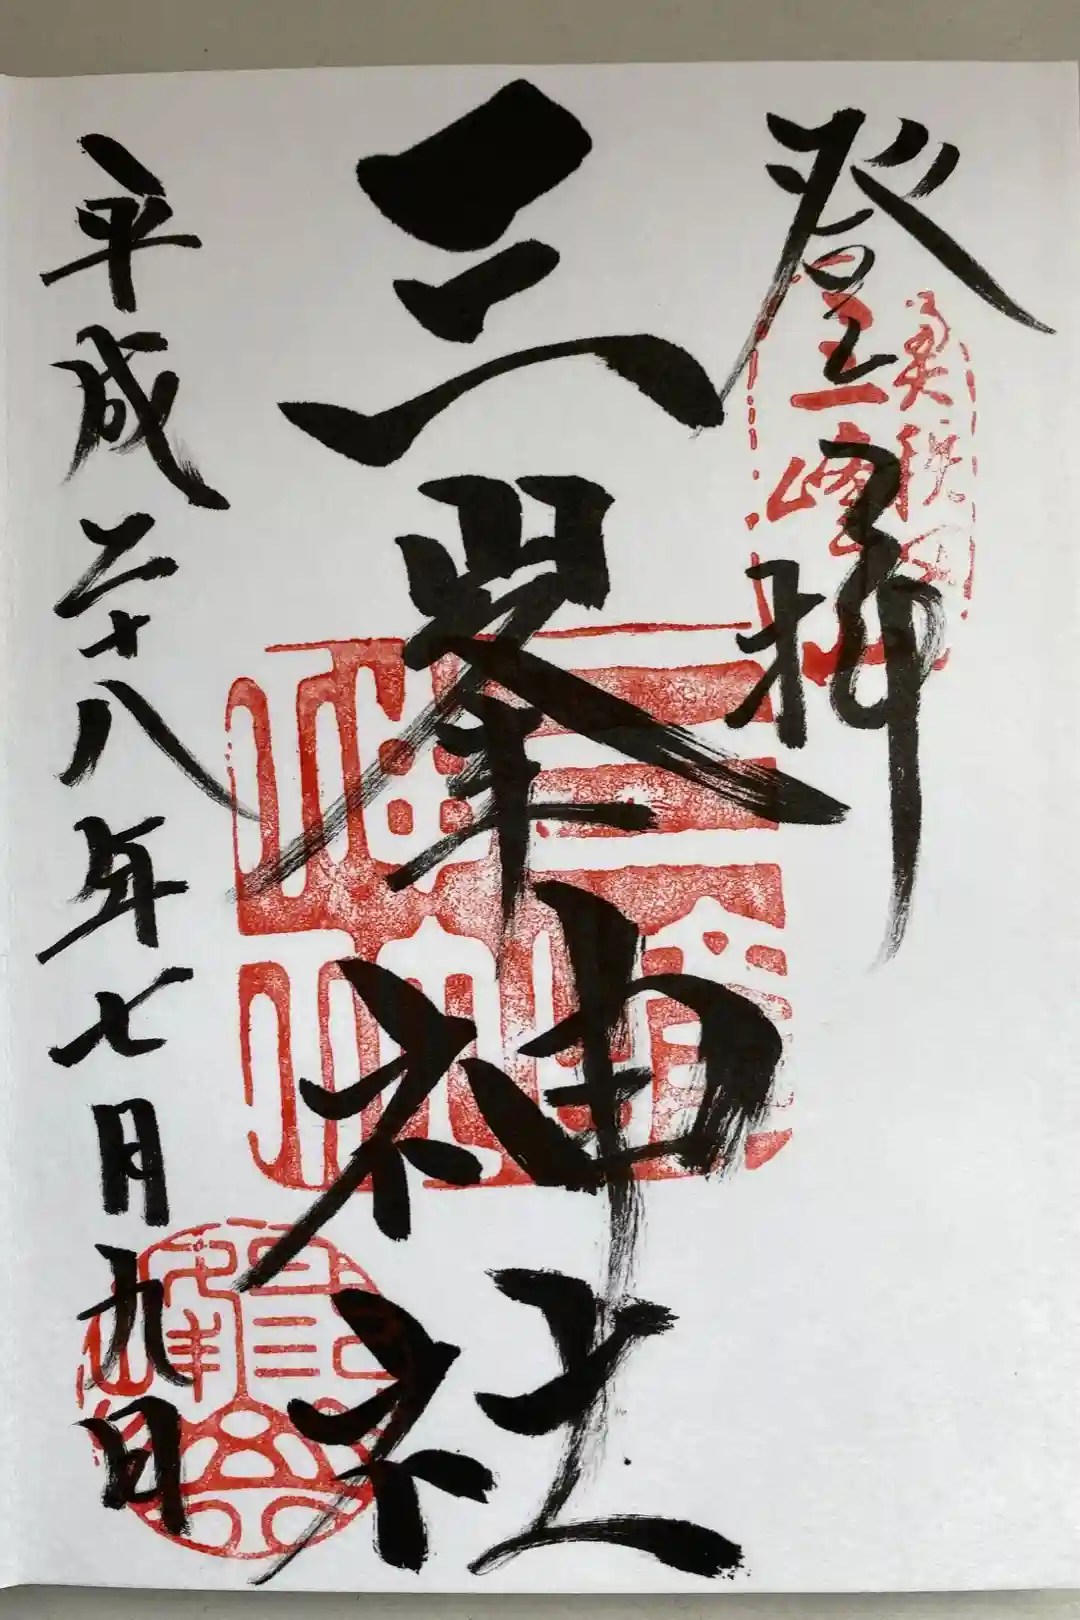 登拝
三峯神社
平成二十八年七月九日
奥秩父
三峰山
三峯神社